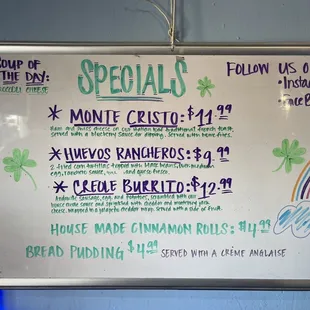 SOUP OF
THE DAY:
BROCCOLI CHEESE
SPECIALS
FOLLOW US O
Insta
FaceB
* MONTE CRISTO: $11.99
Ham and swiss cheese on our Italian bread, french toast,
served with a blueberry sauce for dipping. Served with home fries.
* HUEVOS RANCHEROS: $9.99
2 fried corn tortillas topped with black beans,
egg, ranchero sauce, and queso fresco.
* CREOLE BURRITO: $12.99
Andouille sausage, egg, and potatoes, scrambled with our
house made and sprinkled with cheddar and monterey jack
cheese. Wrapped in a jalapeño cheddar wrap. Served with a side of fruit.
HOUSE MADE CINNAMON ROLLS: $4.99
BREAD PUDDING $4.99 SERVED WITH A CRÈME ANGLAISE